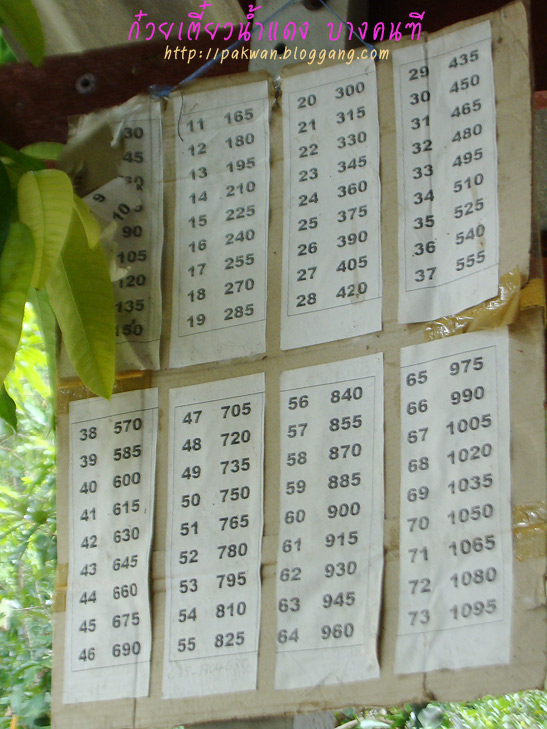 ก๋วยเตี๋ยวน้ำแดง บางคนฑี
http://pakwan.bloggang.com
30
45
9
10
90
105
120
135
150
11 165
12 180
13 195
14 210
15 225
16 240
17 255
18 270
19 285
20 300
21 315
22 330
23 345
24 360
25 375
26 390
27 405
28 420
29 435
30 450
31 465
32 480
33 495
34 510
35 525
36 540
37 555
38 570
39 585
40 600
41 615
42 630
43 645
44 660
45 675
46 690
47 705
48 720
49 735
50 750
51 765
52 780
53 795
54 810
55 825
56 840
57 855
58 870
59 885
60 900
61 915
62 930
63 945
64 960
65 975
66 990
67 1005
68 1020
69 1035
70 1050
71 1065
72 1080
73 1095